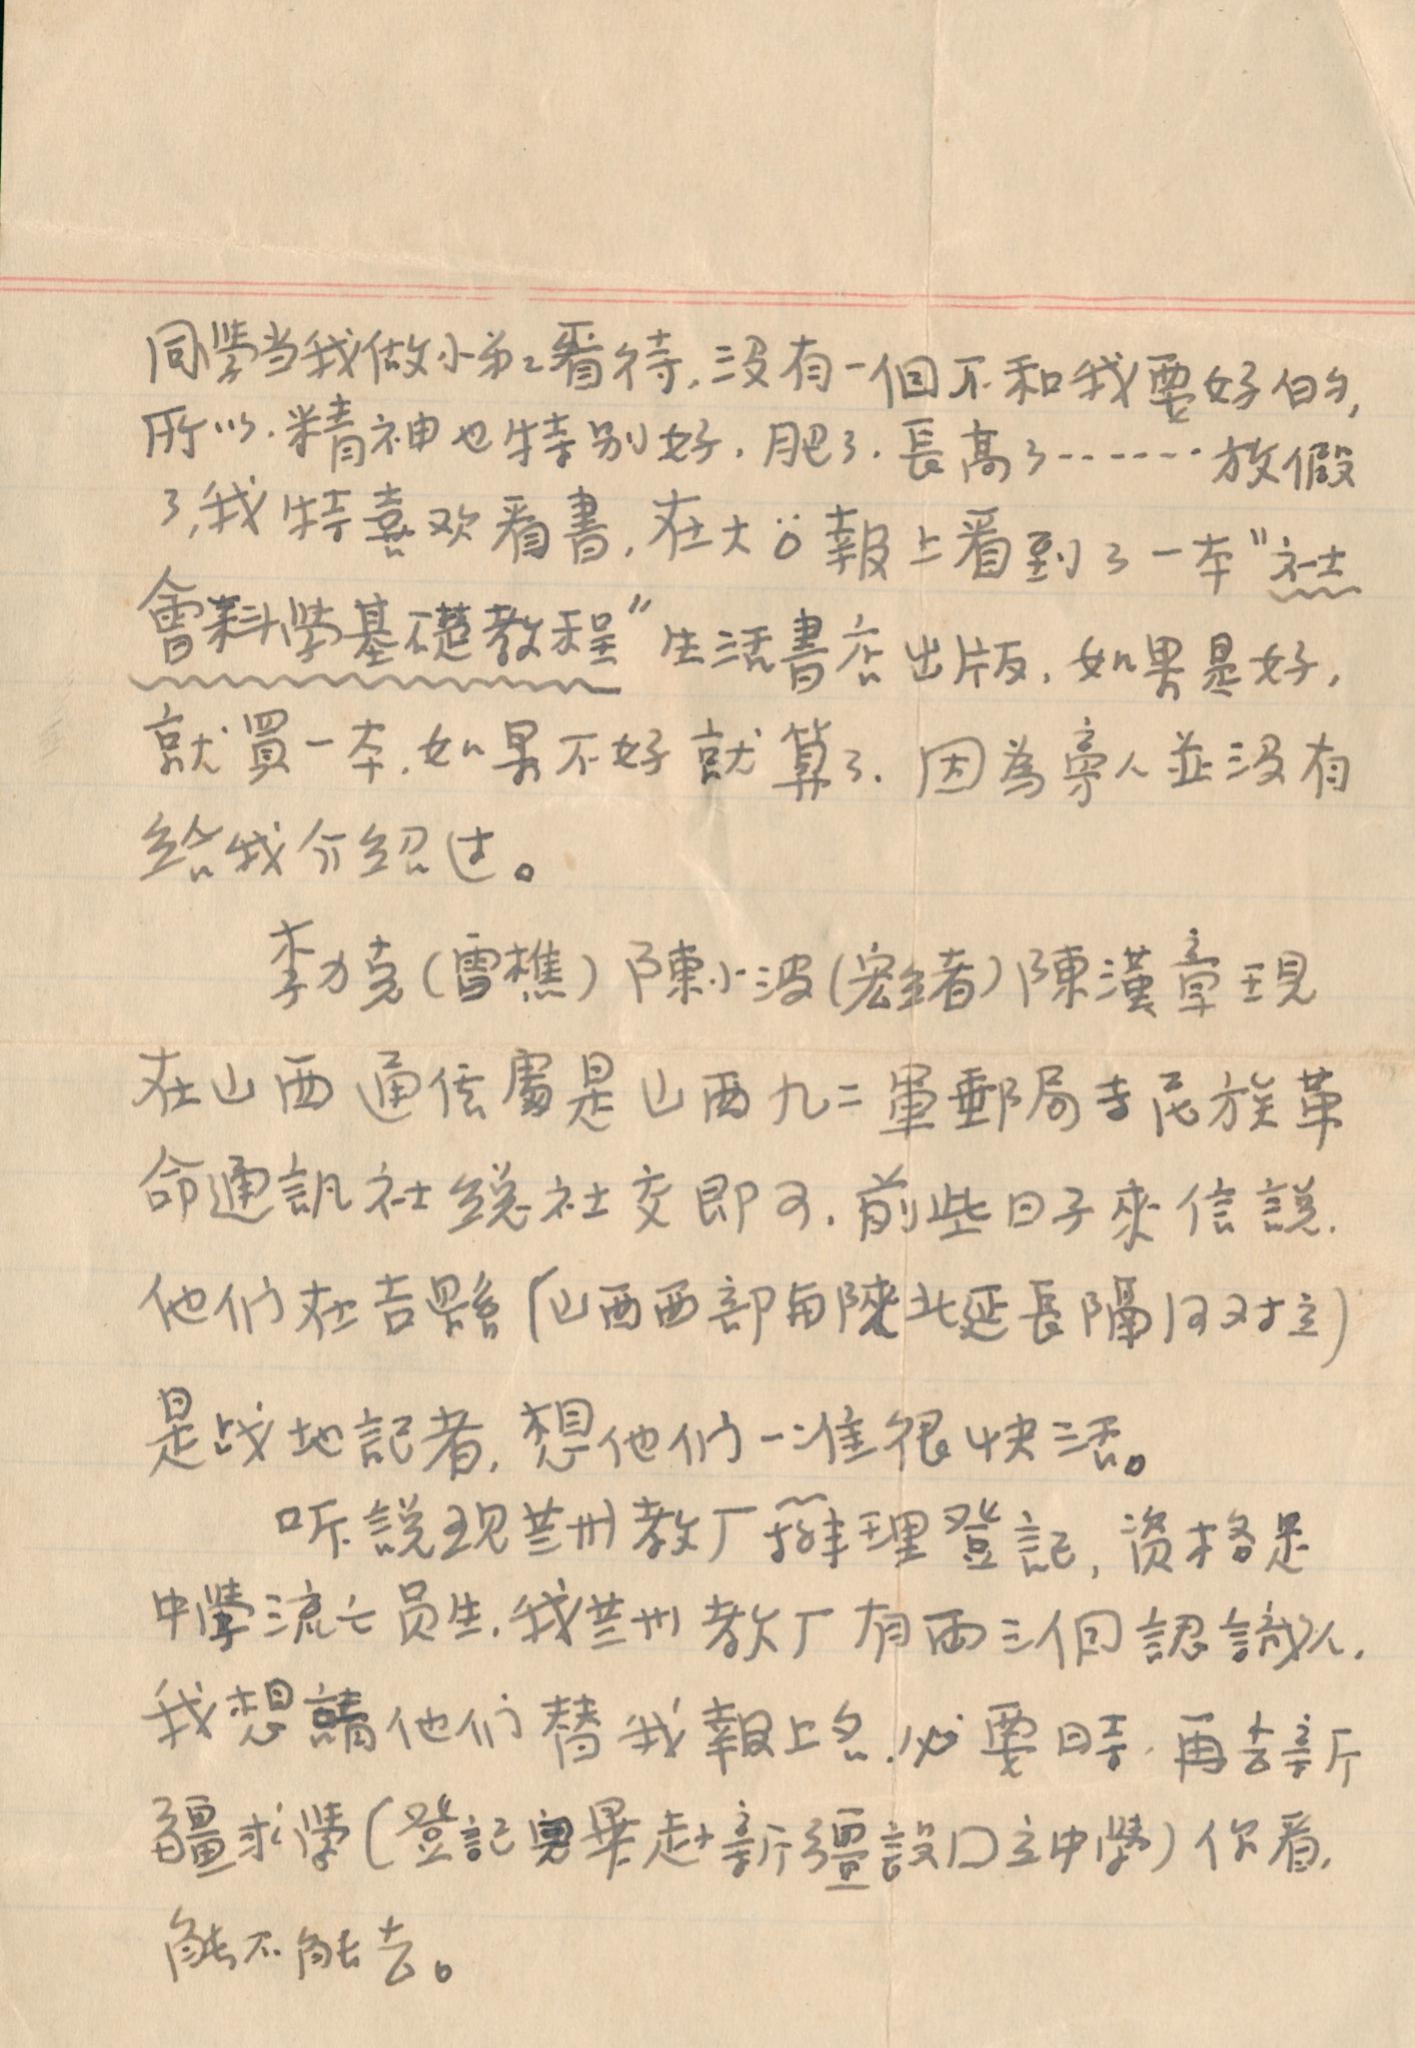 同學当我做小弟〻看待，没有一個不和我要好的，
所以．精神也特别好．肥了．長高了‥‥‥放假
了，我特喜欢看書，在大公報上看到了一本"社
會科學基礎教程"生活書店出版，如果是好，
就買一本．如果不好就算了．因為旁人並没有
給我介紹过。
李力克(雪樵)陳小波(宏緒)陳漢章現
在山西通信處是山西九二軍郵局 民族革
命通訊社總社交即可．前些日子來信說．
他们在吉縣(山西西部与陝北延長隔河对立)
是战地記者，想他们一准很快活。
听說現兰州教厅辦理登記，資格是
中學流亡员生．我兰州教厅有両三個認識人．
我想請他们替我報上名．必要時．再去新
疆求學(登記 畢赴新疆設囗立中學)你看，
能不能去。